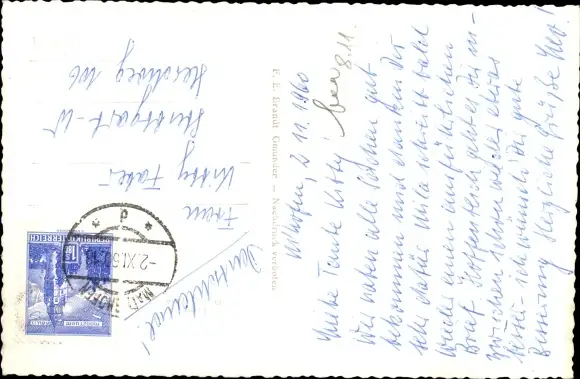 Altofen, 2. 11. 1960
Liebe Tante Kitty!
Wir haben alle Sachen gut
bekommen und danken Dir
sehr dafür. Mila schreibt bald
wieder einen ausführlichen
Brief. Hoffentlich geht es Dir in-
zwischen schon wieder etwas
besser – ich wünsch Dir gute
Besserung. Herzliche Grüße
8.11.
F. E. Brandt Gmunden — Nachdruck verboten
Frau
Kitty Faber
Stuttgart-W
106
Deutschland!
REPUBLIK ÖSTERREICH
-2.XI.6